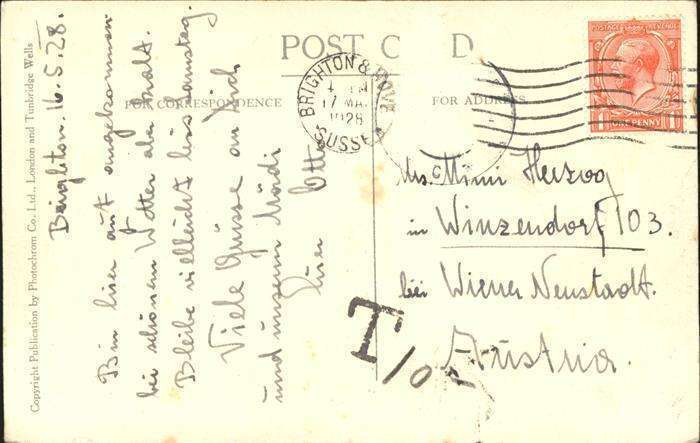 POST C D
FOR CORRESPONDENCE
FOR ADDRESS
Copyright Publication by Photochrom Co., Ltd., London and Tunbridge Wells
Brighton. 16.5.28.
Bin hier gut angekommen
bei schönem Wetter aber kalt.
Bleibe vielleicht bis Samstag.
Viele Grüsse an Dich
und unsern Mädi
Euer Otto
BRIGHTON & HOVE
17 MA
1928
SUSSE
POSTAGE REVENUE
1 PENNY 1
Mrs. Mimi Herzog
in Winzendorf 103.
bei Wiener Neustadt.
Austria.
T/